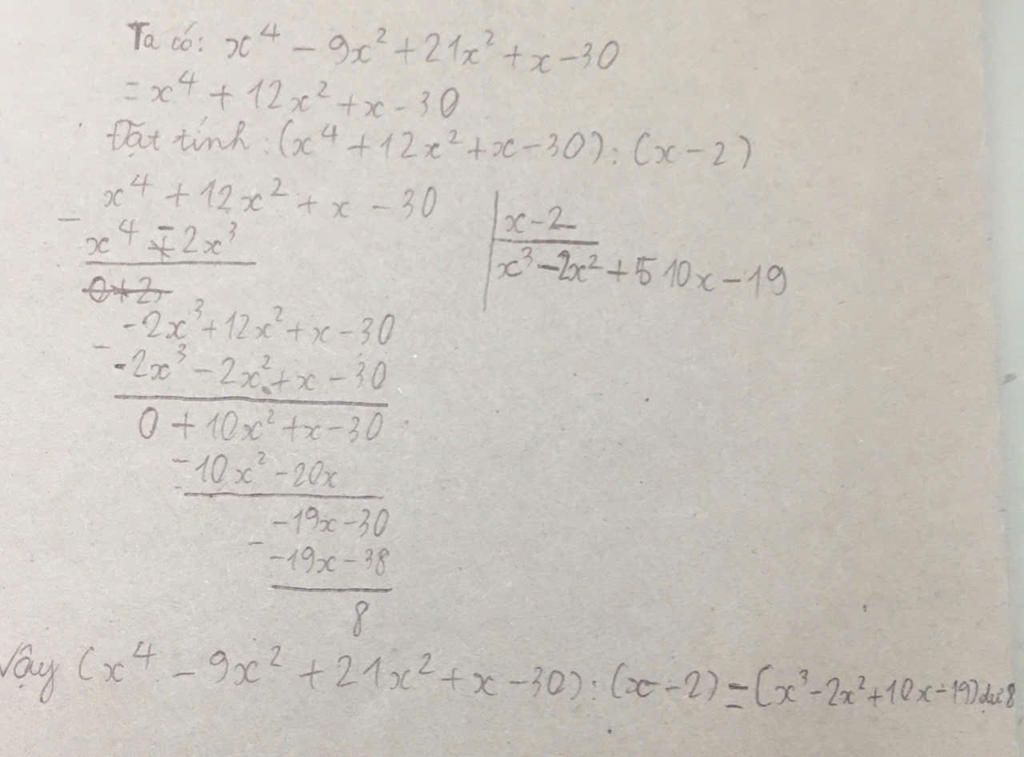 Ta có: x⁴ - 9x² + 21x² + x - 30
= x⁴ + 12x² + x - 30
Đặt tính: (x⁴ + 12x² + x - 30) : (x - 2)
x⁴ + 12x² + x - 30
x - 2
- x⁴ - 2x³
x³ - 2x² + 5 10x - 19
0 + 2
-2x³ + 12x² + x - 30
- -2x³ - 2x² + x - 30
0 + 10x² + x - 30
- 10x² - 20x
-19x - 30
- -19x - 38
8
Vậy (x⁴ - 9x² + 21x² + x - 30) : (x - 2) = (x³ - 2x² + 10x - 19) dư 8